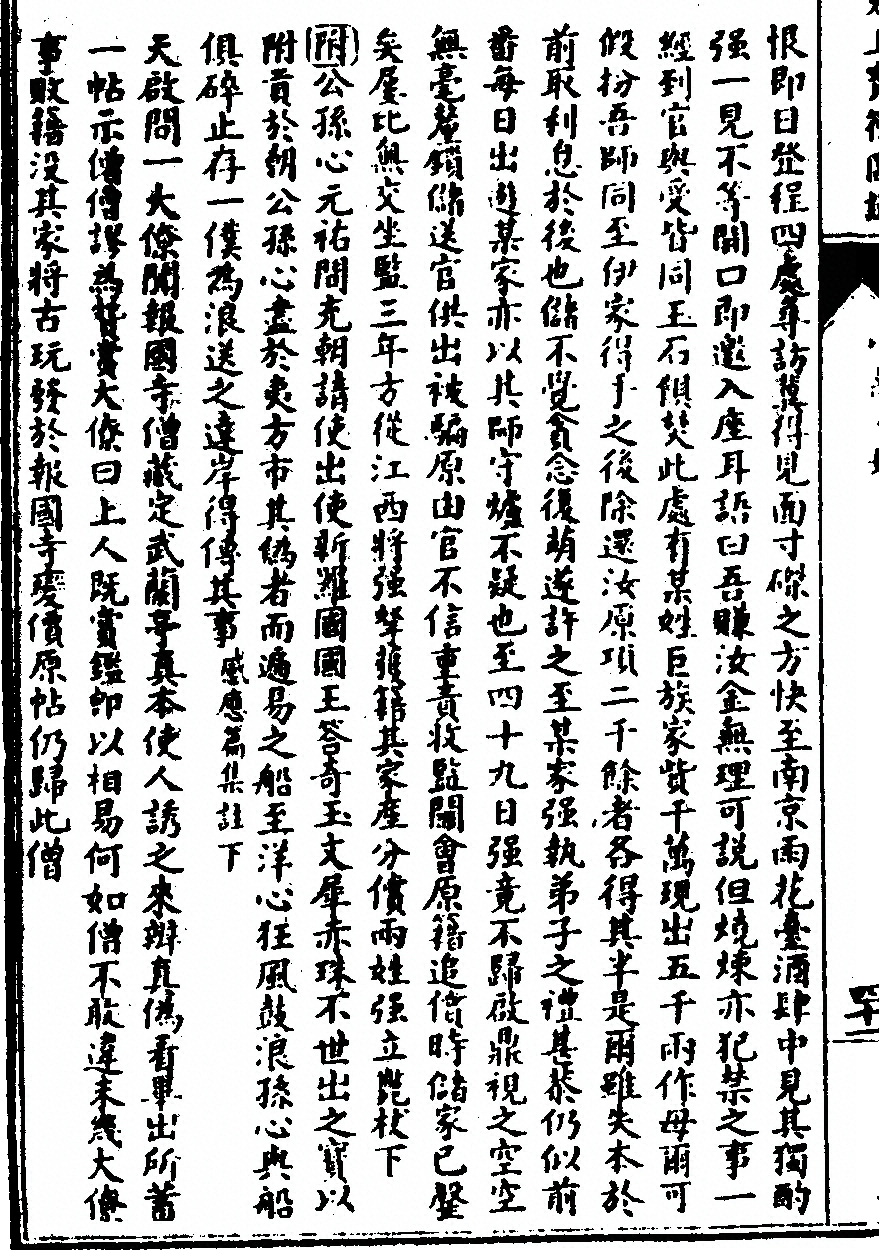 恨即日登程四處尋訪冀得見面寸磔之方快至南京雨花臺酒肆中見其獨酌
强一見不等開口即邀入座耳語曰吾賺汝金無理可說但燒煉亦犯禁之事一
經到官與受皆同玉石俱焚此處有某姓巨族家貲千萬現出五千兩作母爾可
假扮吾師同至伊家得手之後除還汝原項二千餘者各得其半是爾雖失本於
前取利息於後也儲不覺貪念復萌遂許之至某家强執弟子之禮甚恭仍似前
番每日出遊某家亦以其師守爐不疑也至四十九日强竟不歸啟鼎視之空空
無毫釐鎖儲送官供出被騙原由官不信重責收監關會原籍追償時儲家已罄
矣屢比無交坐監三年方從江西將强拏獲籍其家產分償兩姓强立斃杖下
附公孫心元祐間充朝請使出使新羅國國王答奇玉文犀赤珠不世出之寶以
附貢於朝公孫心盡於夷方市其偽者而遍易之船至洋心狂風鼓浪孫心與船
俱碎止存一僕爲浪送之達岸得傳其事感應篇集註下
天啟間一大僚聞報國寺僧藏定武蘭亭真本使人誘之來辦真偽看畢出所蓄
一帖示僧僧謬爲贊賞大僚曰上人既賞鑑即以相易何如僧不敢違未幾大僚
事敗籍沒其家將古玩發於報國寺變價原帖仍歸此僧